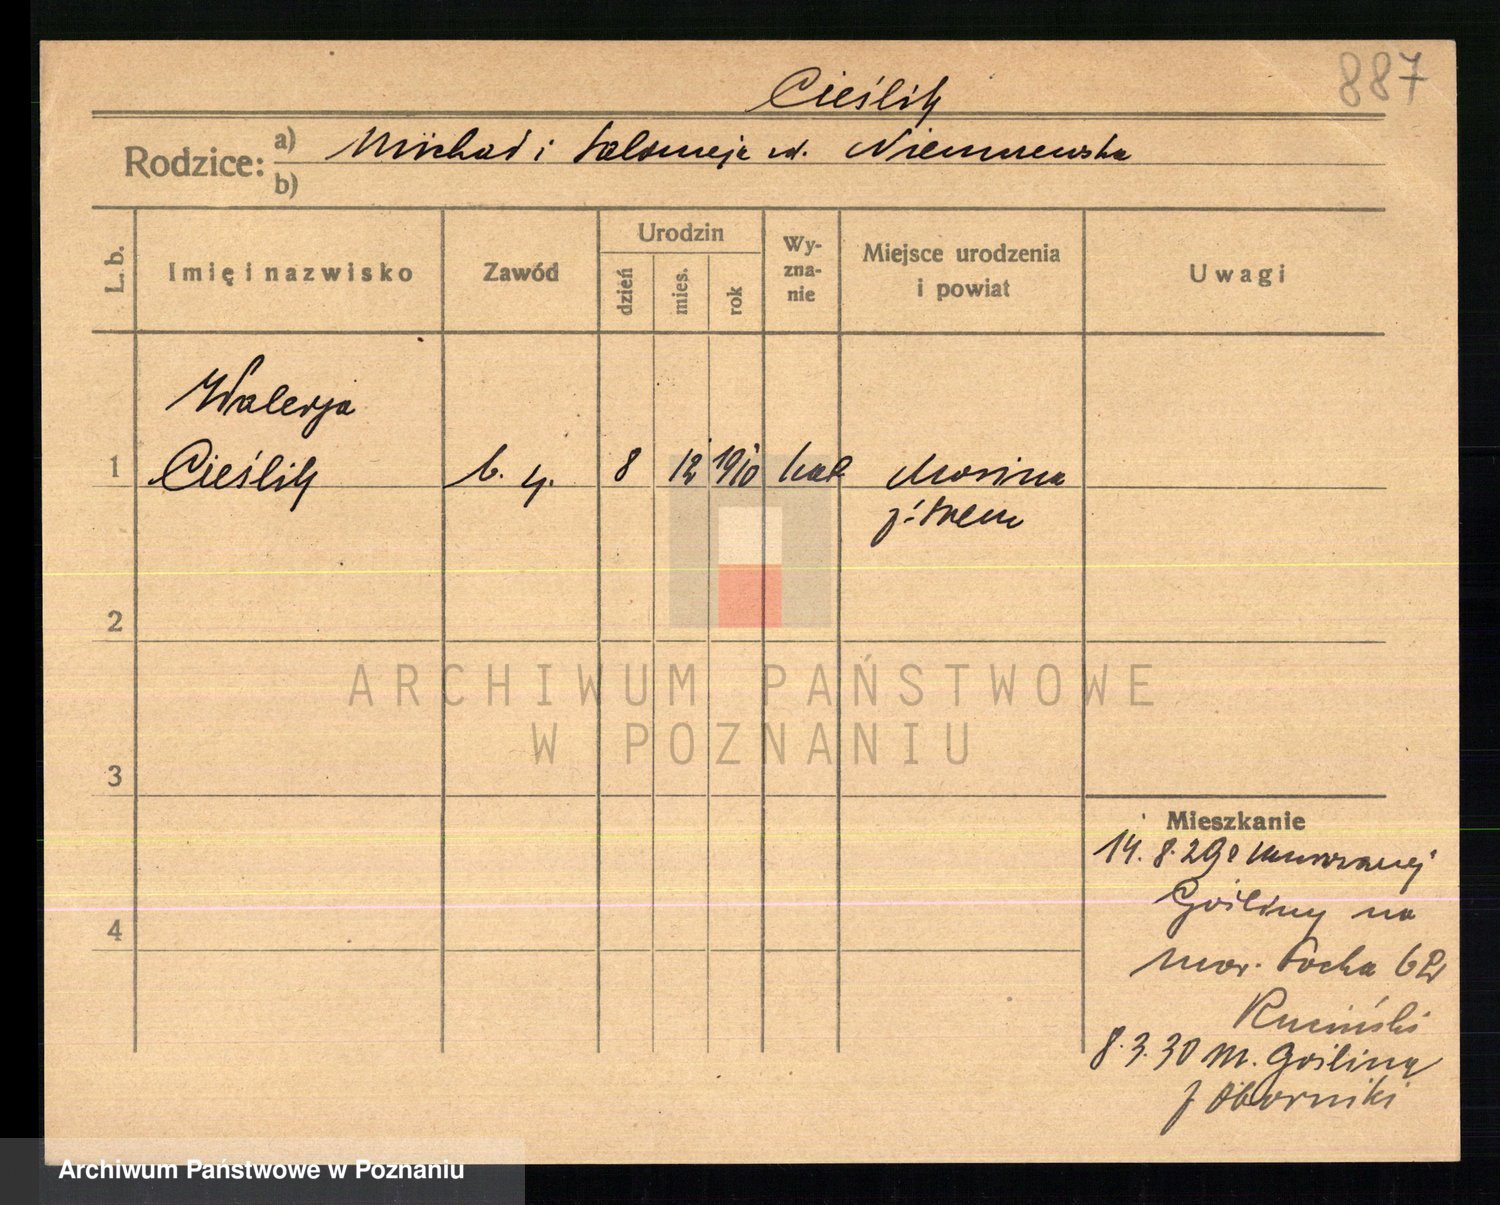 887
Cieślik
Rodzice: a) Michał i Salomeja ur. Niemnewska
b)
L. b. Imię i nazwisko Zawód Urodzin dzień mies. rok Wyznanie Miejsce urodzenia i powiat Uwagi
Walerja
1 Cieślik b. z. 8 12 1910 kat Mosina
p. Śrem
2
ARCHIWUM PAŃSTWOWE
W POZNANIU
3
Mieszkanie
14. 8. 29 z Murowanej
4 Gośliny na
mar. Focha 62
Ruciński
8. 3. 30 M. Goślina
p Oborniki
Archiwum Państwowe w Poznaniu